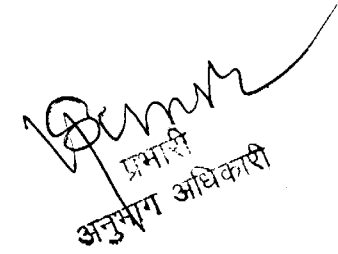 प्रभारी
अनुभाग अधिकारी